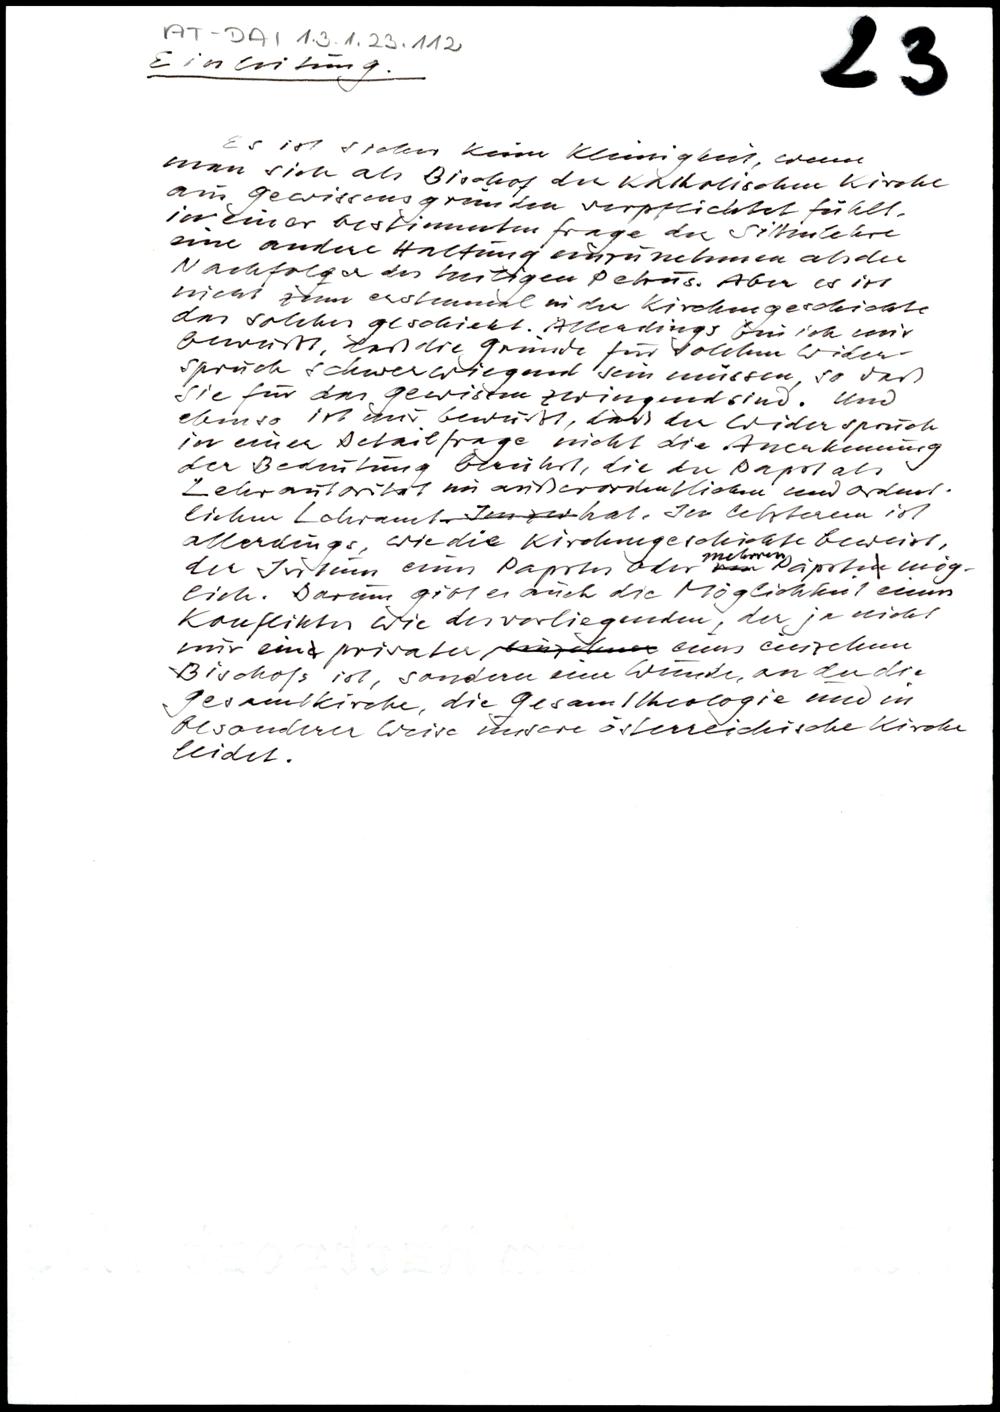 AT-DAI 1.3.1.23.112
23
Einleitung.
Es ist sicher keine Kleinigkeit, wenn
man sich als Bischof der katholischen Kirche
aus Gewissensgründen verpflichtet fühlt,
in einer bestimmten Frage der Sittenlehre
eine andere Haltung einzunehmen als der
Nachfolger des heiligen Petrus. Aber es ist
nicht zum erstenmal in der Kirchengeschichte
das solches geschieht. Allerdings bin ich mir
bewußt, daß die Gründe für solchen Wider-
spruch schwerwiegend sein müssen, so daß
sie für das Gewissen zwingend sind. Und
ebenso ist mir bewußt, daß der Widerspruch
in einer Detailfrage nicht die Anerkennung
der Bedeutung berührt, die der Papst als
Lehrautorität im außerordentlichen und ordent-
lichen Lehramt hat. Im letzterem ist
allerdings, wie die Kirchengeschichte beweist,
der Irrtum eines Papstes oder mehrerer Päpste mög-
lich. Darum gibt es auch die Möglichkeit eines
Konfliktes wie des vorliegenden, der ja nicht
nur ein privater eines einzelnen
Bischofs ist, sondern eine Wunde, an der die
Gesamtkirche, die Gesamttheologie und in
besonderer Weise unsere österreichische Kirche
leidet.